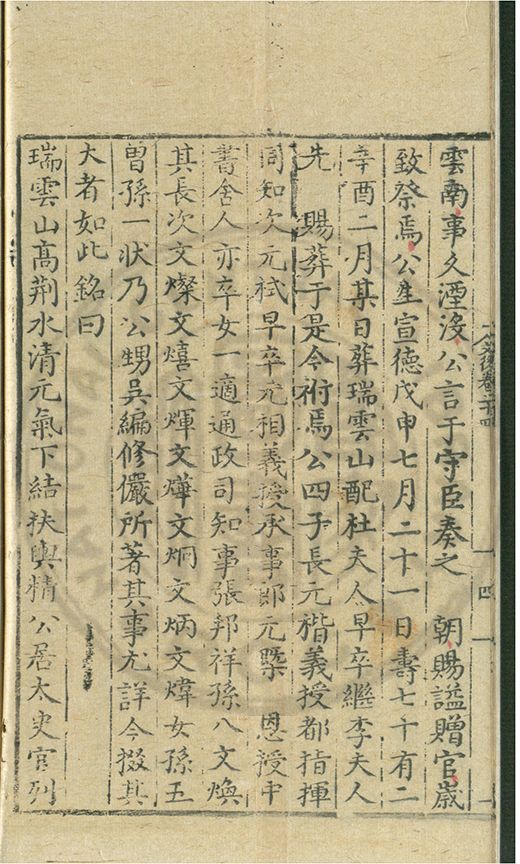 雲南事久湮沒公言于守臣奏之　朝賜謚贈官歲
致祭焉公生宣德戊申七月二十一日壽七十有二
辛酉二月某日葬瑞雲山配杜夫人早卒繼李夫人
先　賜葬于是今祔焉公四子長元楷義授都指揮
同知次元栻早卒元相義授承事郎元槩　恩授中
書舍人亦卒女一適通政司知事張邦祥孫八文煥
其長次文燦文熺文煇文燁文烱文炳文煒女孫五
曽孫一狀乃公甥吳編修儼所著其事尤詳今掇其
大者如此銘曰
瑞雲山高荆水清元氣下結扶輿精公居太史官列
文後卷二十四
四